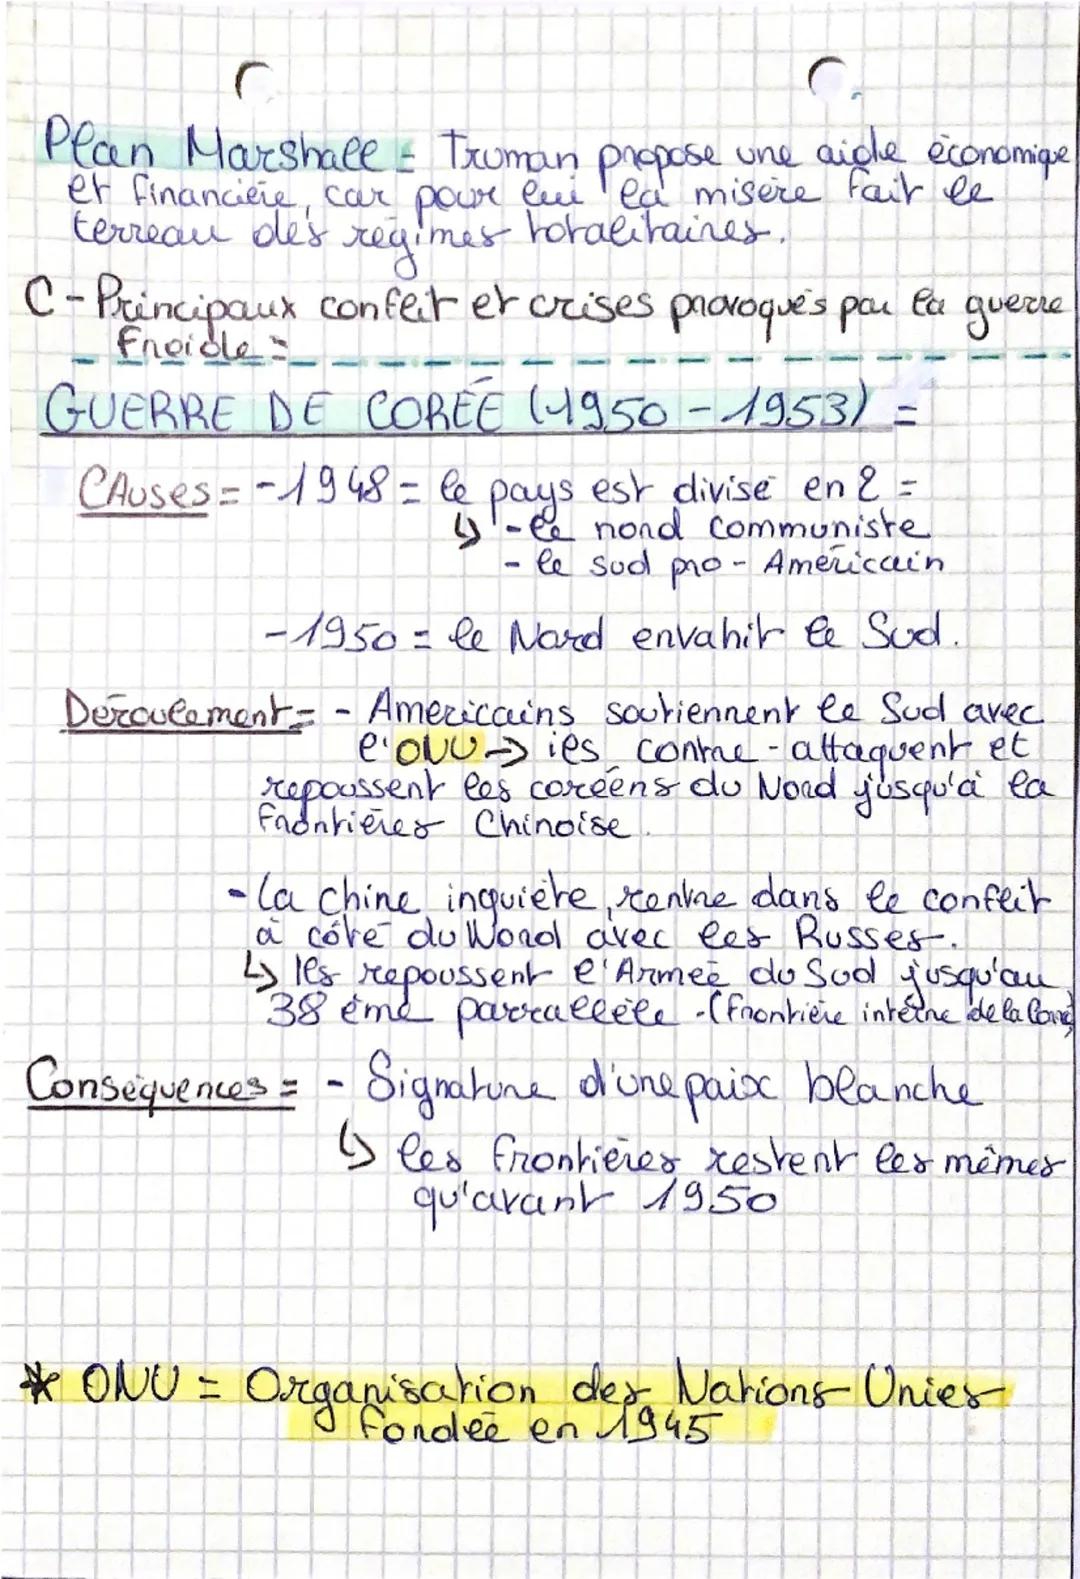 Plan Marshall = Truman propose une aide économique
et financière, car pour lui la misère fait le
terreau des régimes totalitaires.
C - Principaux conflit et crises provoqués par la guerre
Froide =
GUERRE DE CORÉE (1950 - 1953) =
CAUSES = - 1948 = le pays est divisé en 2 =
↳ - le nord communiste
- le sud pro - Américain
- 1950 = le Nord envahit le Sud.
Déroulement = - Américains soutiennent le Sud avec
l'ONU → ils contre - attaquent et
repoussent les coréens du Nord jusqu'à la
Frontières Chinoise.
- La chine inquiète, rentre dans le conflit
à côté du Nord avec les Russes.
↳ Ils repoussent l'Armée du Sud jusqu'au
38 ème parrallèle - (Frontière interne de la Corée)
Conséquences = - Signature d'une paix blanche
↳ les frontières restent les mêmes
qu'avant 1950
* ONU = Organisation des Nations Unies
Fondée en 1945